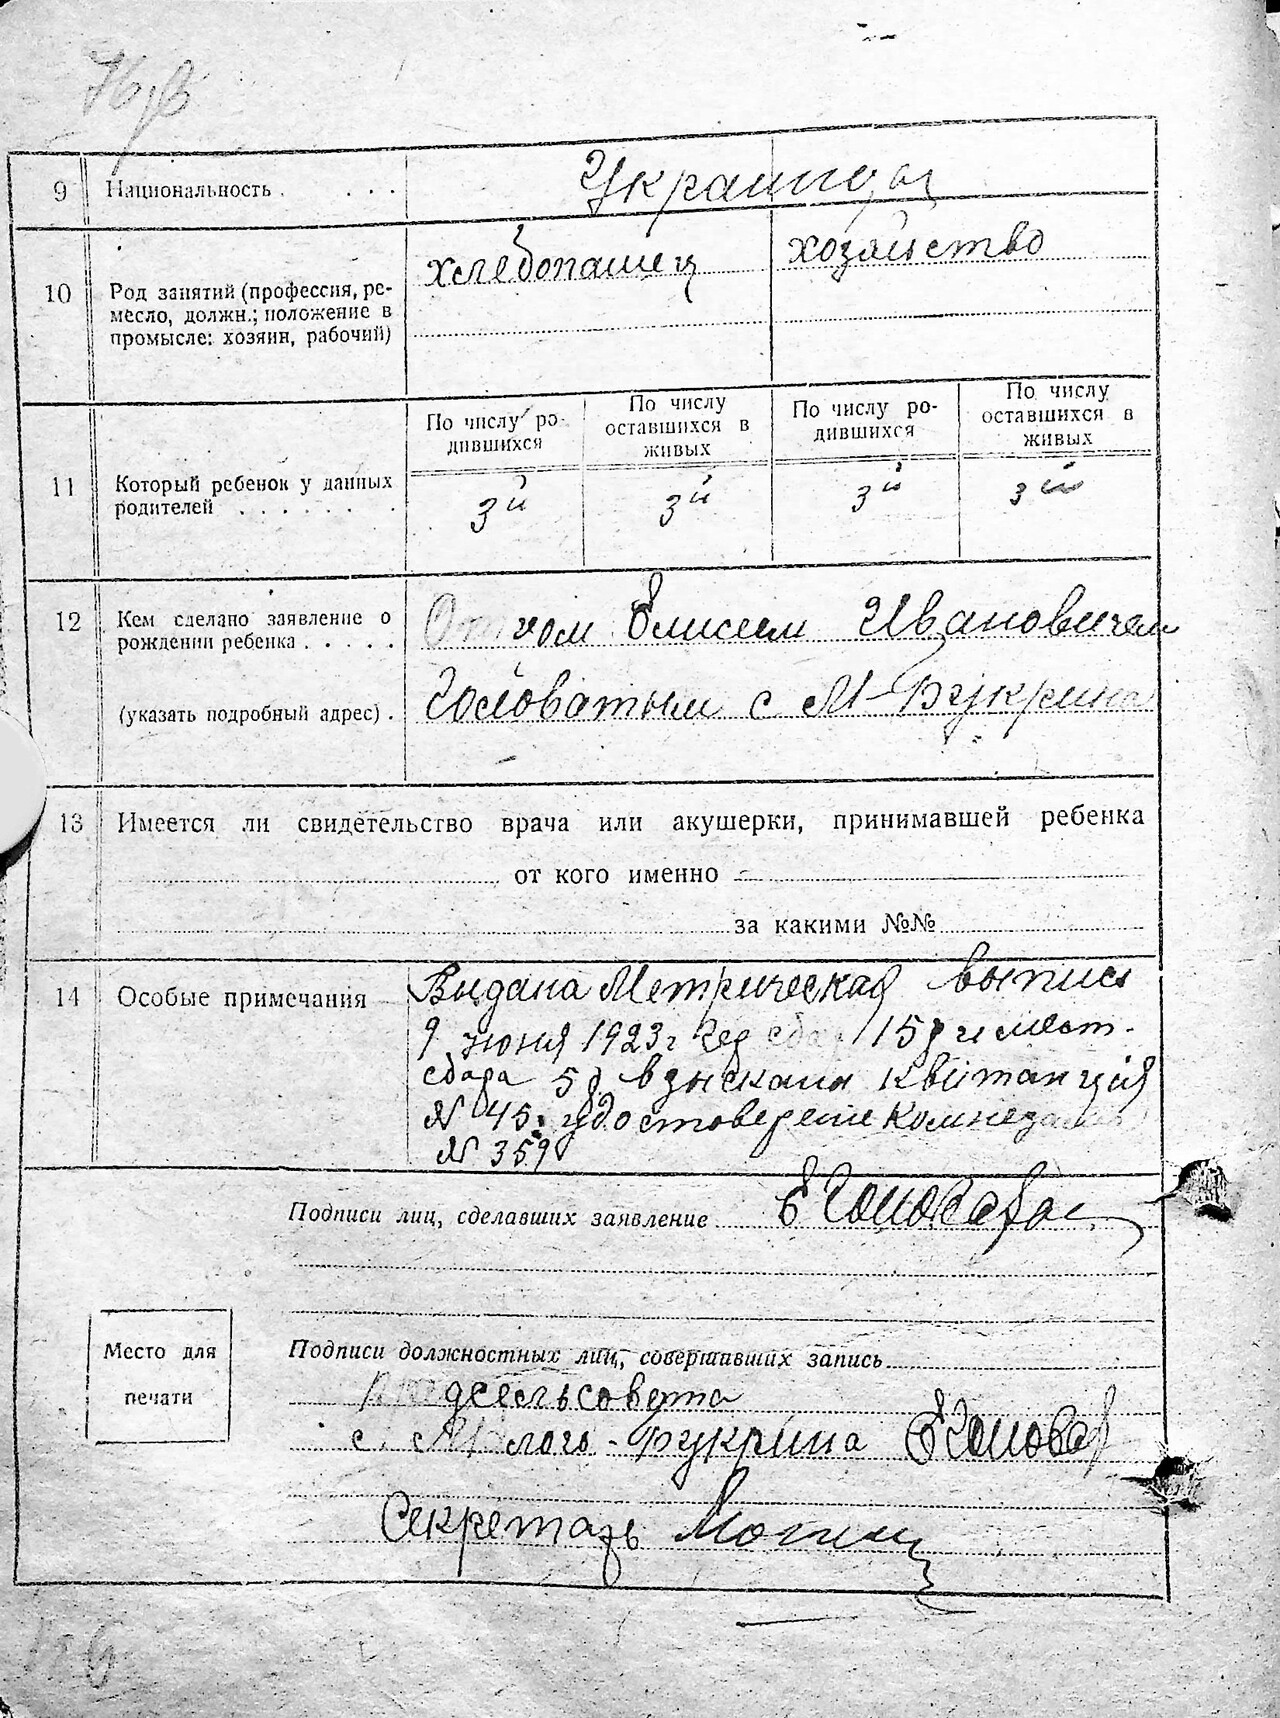 9 Национальность . . . . Украинцы
10 Род занятий (профессия, ре-
месло, должн.; положение в
промысле: хозяин, рабочий)
хлебопашец хозяйство
11 Который ребенок у данных
родителей . . . . . . .
По числу ро-
дившихся
По числу
оставшихся в
живых
По числу ро-
дившихся
По числу
оставшихся в
живых
3й 3й 3й 3й
12 Кем сделано заявление о
рождении ребенка . . . . .
(указать подробный адрес) .
Отцом Елисеем Ивановичем
Головатым с М-Букрина
13 Имеется ли свидетельство врача или акушерки, принимавшей ребенка
от кого именно
за какими №№
14 Особые примечания
Выдана Метрическая выпись
9 июня 1923г 15р и мест-
сбора 5р взыскан квитанция
№ 45
№ 359
Подписи лиц, сделавших заявление Е Головат
Место для
печати
Подписи должностных лиц, совершавших запись
предсельсовета
с. Мало-Букрина Е Головат
Секретарь